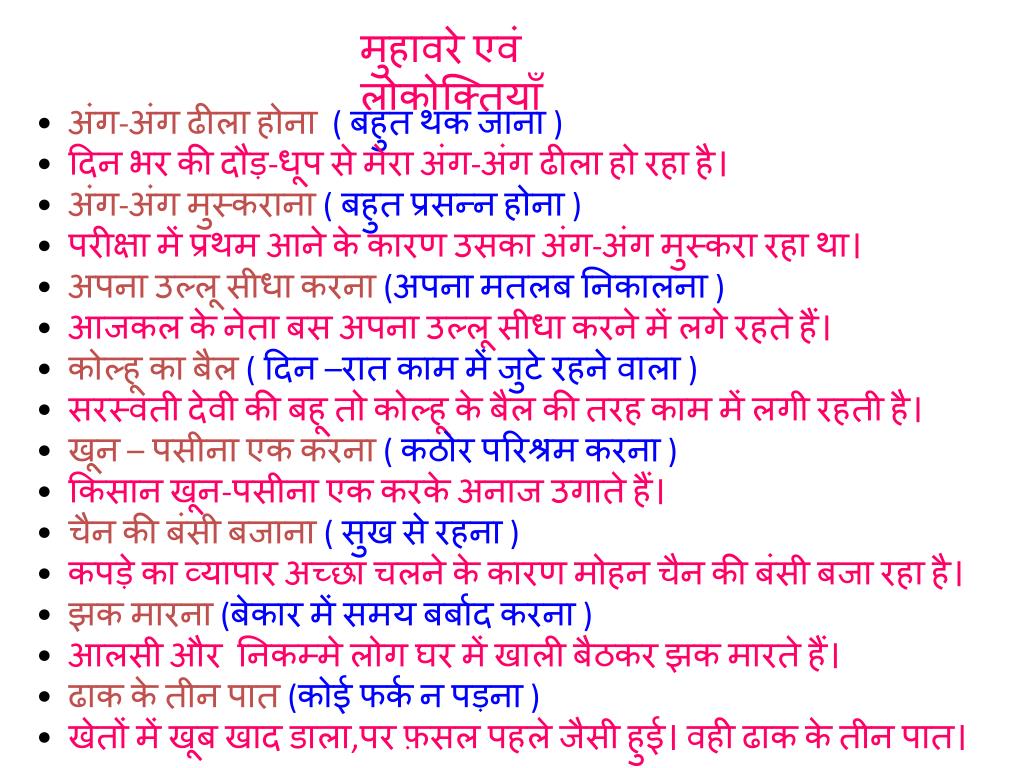 मुहावरे एवं
लोकोक्तियाँ
• अंग-अंग ढीला होना ( बहुत थक जाना )
• दिन भर की दौड़-धूप से मेरा अंग-अंग ढीला हो रहा है।
• अंग-अंग मुस्कराना ( बहुत प्रसन्न होना )
• परीक्षा में प्रथम आने के कारण उसका अंग-अंग मुस्करा रहा था।
• अपना उल्लू सीधा करना (अपना मतलब निकालना )
• आजकल के नेता बस अपना उल्लू सीधा करने में लगे रहते हैं।
• कोल्हू का बैल ( दिन –रात काम में जुटे रहने वाला )
• सरस्वती देवी की बहू तो कोल्हू के बैल की तरह काम में लगी रहती है।
• खून – पसीना एक करना ( कठोर परिश्रम करना )
• किसान खून-पसीना एक करके अनाज उगाते हैं।
• चैन की बंसी बजाना ( सुख से रहना )
• कपड़े का व्यापार अच्छा चलने के कारण मोहन चैन की बंसी बजा रहा है।
• झक मारना (बेकार में समय बर्बाद करना )
• आलसी और निकम्मे लोग घर में खाली बैठकर झक मारते हैं।
• ढाक के तीन पात (कोई फर्क न पड़ना )
• खेतों में खूब खाद डाला,पर फ़सल पहले जैसी हुई। वही ढाक के तीन पात।